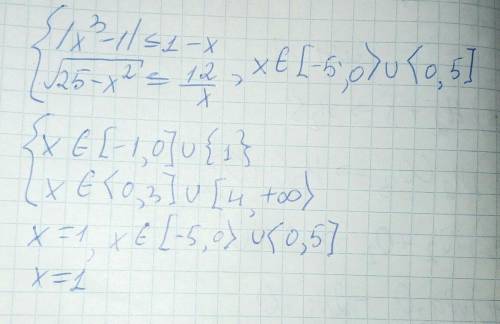 { |x³-1| ≤ 1-x
{ √25-x² ≤ 12/x , x∈[-5,0⟩∪⟨0,5]
{ x∈[-1,0]∪{1}
{ x∈⟨0,3]∪[4,+∞⟩
x=1, x∈[-5,0⟩∪⟨0,5]
x=1